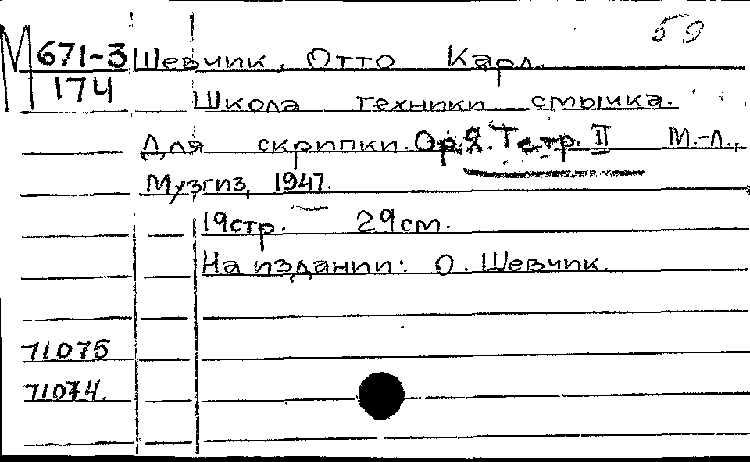 59
М 671-3 Шевчик, Отто Карл.
174
Школа техники смычка.
Для скрипки. Op. 2. Тетр. II М.-Л.,
Музгиз, 1947.
19стр. 29см.
На издании: О. Шевчик.
71075
71074.